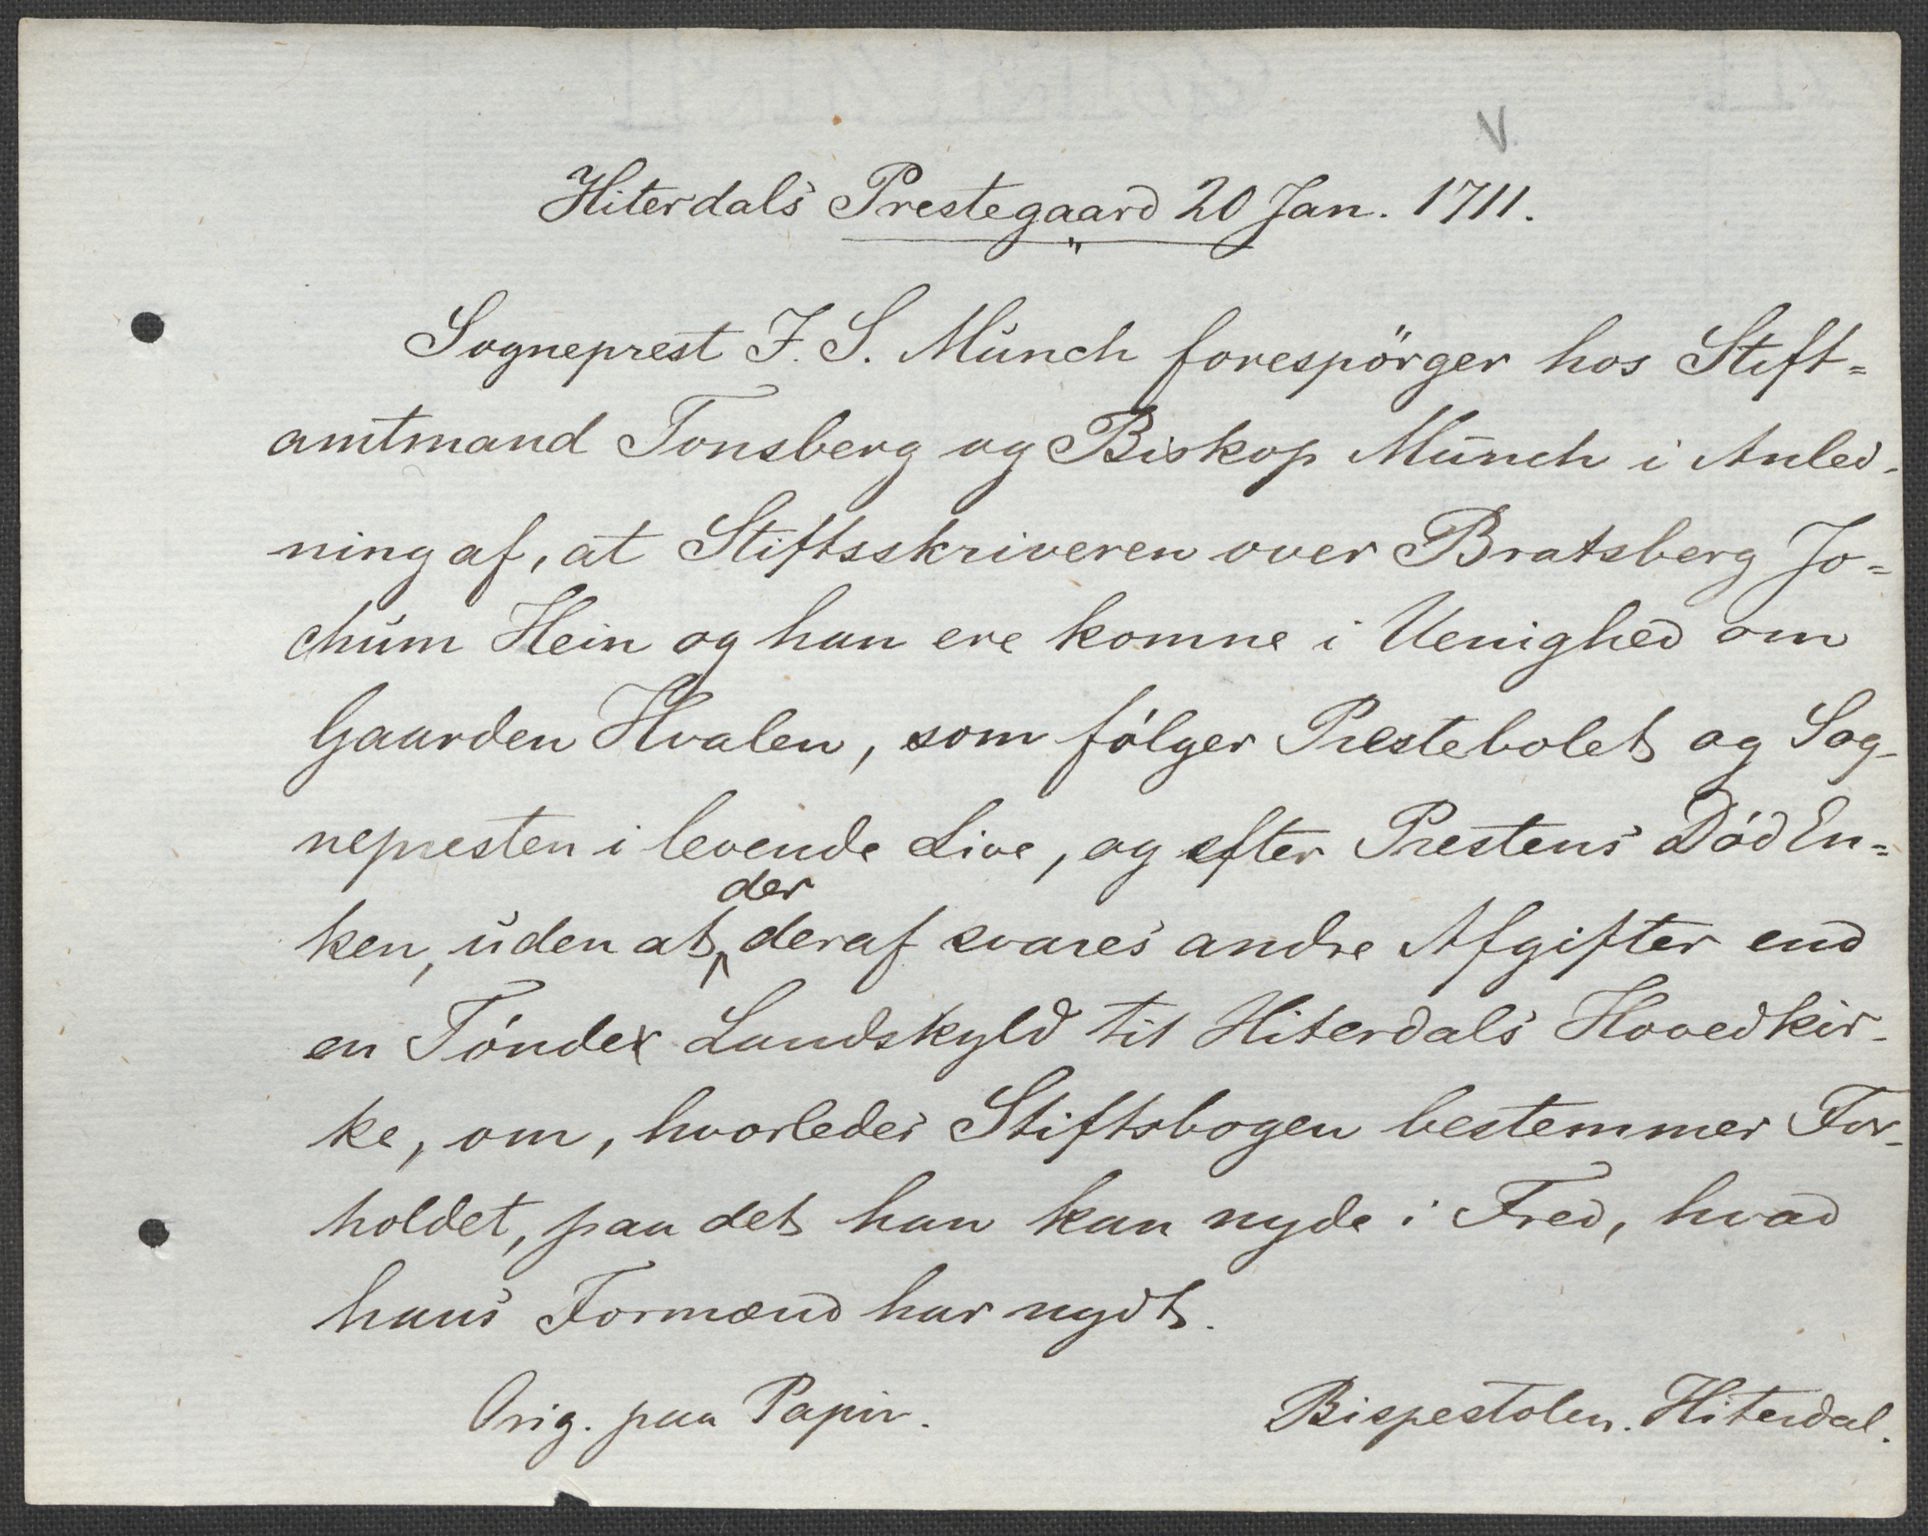 V
Hiterdals Prestegaard 20 Jan. 1711.
Sogneprest J. S. Münch forespörger hos Stift-
amtmand Tonsberg og Biskop Münch i Anled-
ning af, at Stiftsskriveren over Bratsberg Jo-
chum Hein og han ere komne i Uenighed om
Gaarden Hvalen, som følger Prestebolet og Sog-
nepresten i levende Live, og efter Prestens Död En-
ken, uden at der deraf svares andre Afgifter end
en Tönde Landskyld til Hiterdals Hovedkir-
ke, om, hvorledes Stiftsbogen bestemmer For-
holdet, paa det han kan nyde i Fred, hvad
hans Formænd har nydt.
Orig. paa Papir.
Bispestolen. Hiterdal.